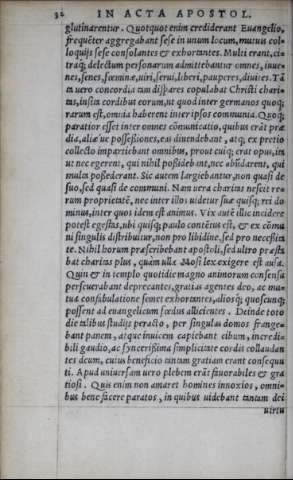 32 IN ACTA APOSTOL.
glutinarentur. Quotquot enim crediderant Euangelio,
frequẽter aggregabant sese in unum locum, mutuis col-
loquijs sese consolantes & exhortantes. Multi erant, ci-
traq; delectum personarum admittebantur omnes, iuue-
nes, senes, fœminæ, uiri, serui, liberi, pauperes, diuites. Tã
ta uero concordia tam dispares copulabat Christi chari-
tas, insita cordibus eorum, ut quod inter germanos quoq;
rarum est, omnia haberent inter ipsos communia. Quoq;
paratior esset inter omnes cõmunicatio, quibus erãt præ
dia, aliæ'ue possessiones, eas diuendebant, atq; ex precio
collecto impartiebant omnibus, prout cuiq; erat opus, in
ut nec egerent, qui nihil possidebant, nec abũdarent, qui
multa possederant. Sic autem largiebantur, non quasi de
suo, sed quasi de communi. Nam uera charitas nescit re-
rum proprietatẽ, nec inter illos uidetur suæ quisq; rei do
minus, inter quos idem est animus. Vix autẽ illic incidere
potest egestas, ubi quisq; paulo contẽtus est, & ex cõmu
ni singulis distribuitur, non pro libidine, sed pro necessita
te. Nihil horum præscribebant apostoli, sed ultro præsta
bat charitas plus, quàm ulla Mosi lex exigere est ausa.
Quin & in templo quotidie magno animorum consensu
perseuerabant deprecantes, gratias agentes deo, ac mu-
tua confabulatione semet exhortantes, aliosq; quoscunq;
possent ad euangelicum fœdus allicientes. Deinde toto
die talibus studijs peracto, per singulas domos frange-
bant panem, atque inuicem capiebant cibum, incredi-
bili gaudio, ac syncerissima simplicitate cordis collaudan
tes deum, cuius beneficio tantum gratiam erant consequu
ti. Apud uniuersam uero plebem erãt fauorabiles & gra
tiosi. Quis enim non amaret homines innoxios, omni-
bus bene facere paratos, in quibus uidebant tantum dei
uirtu